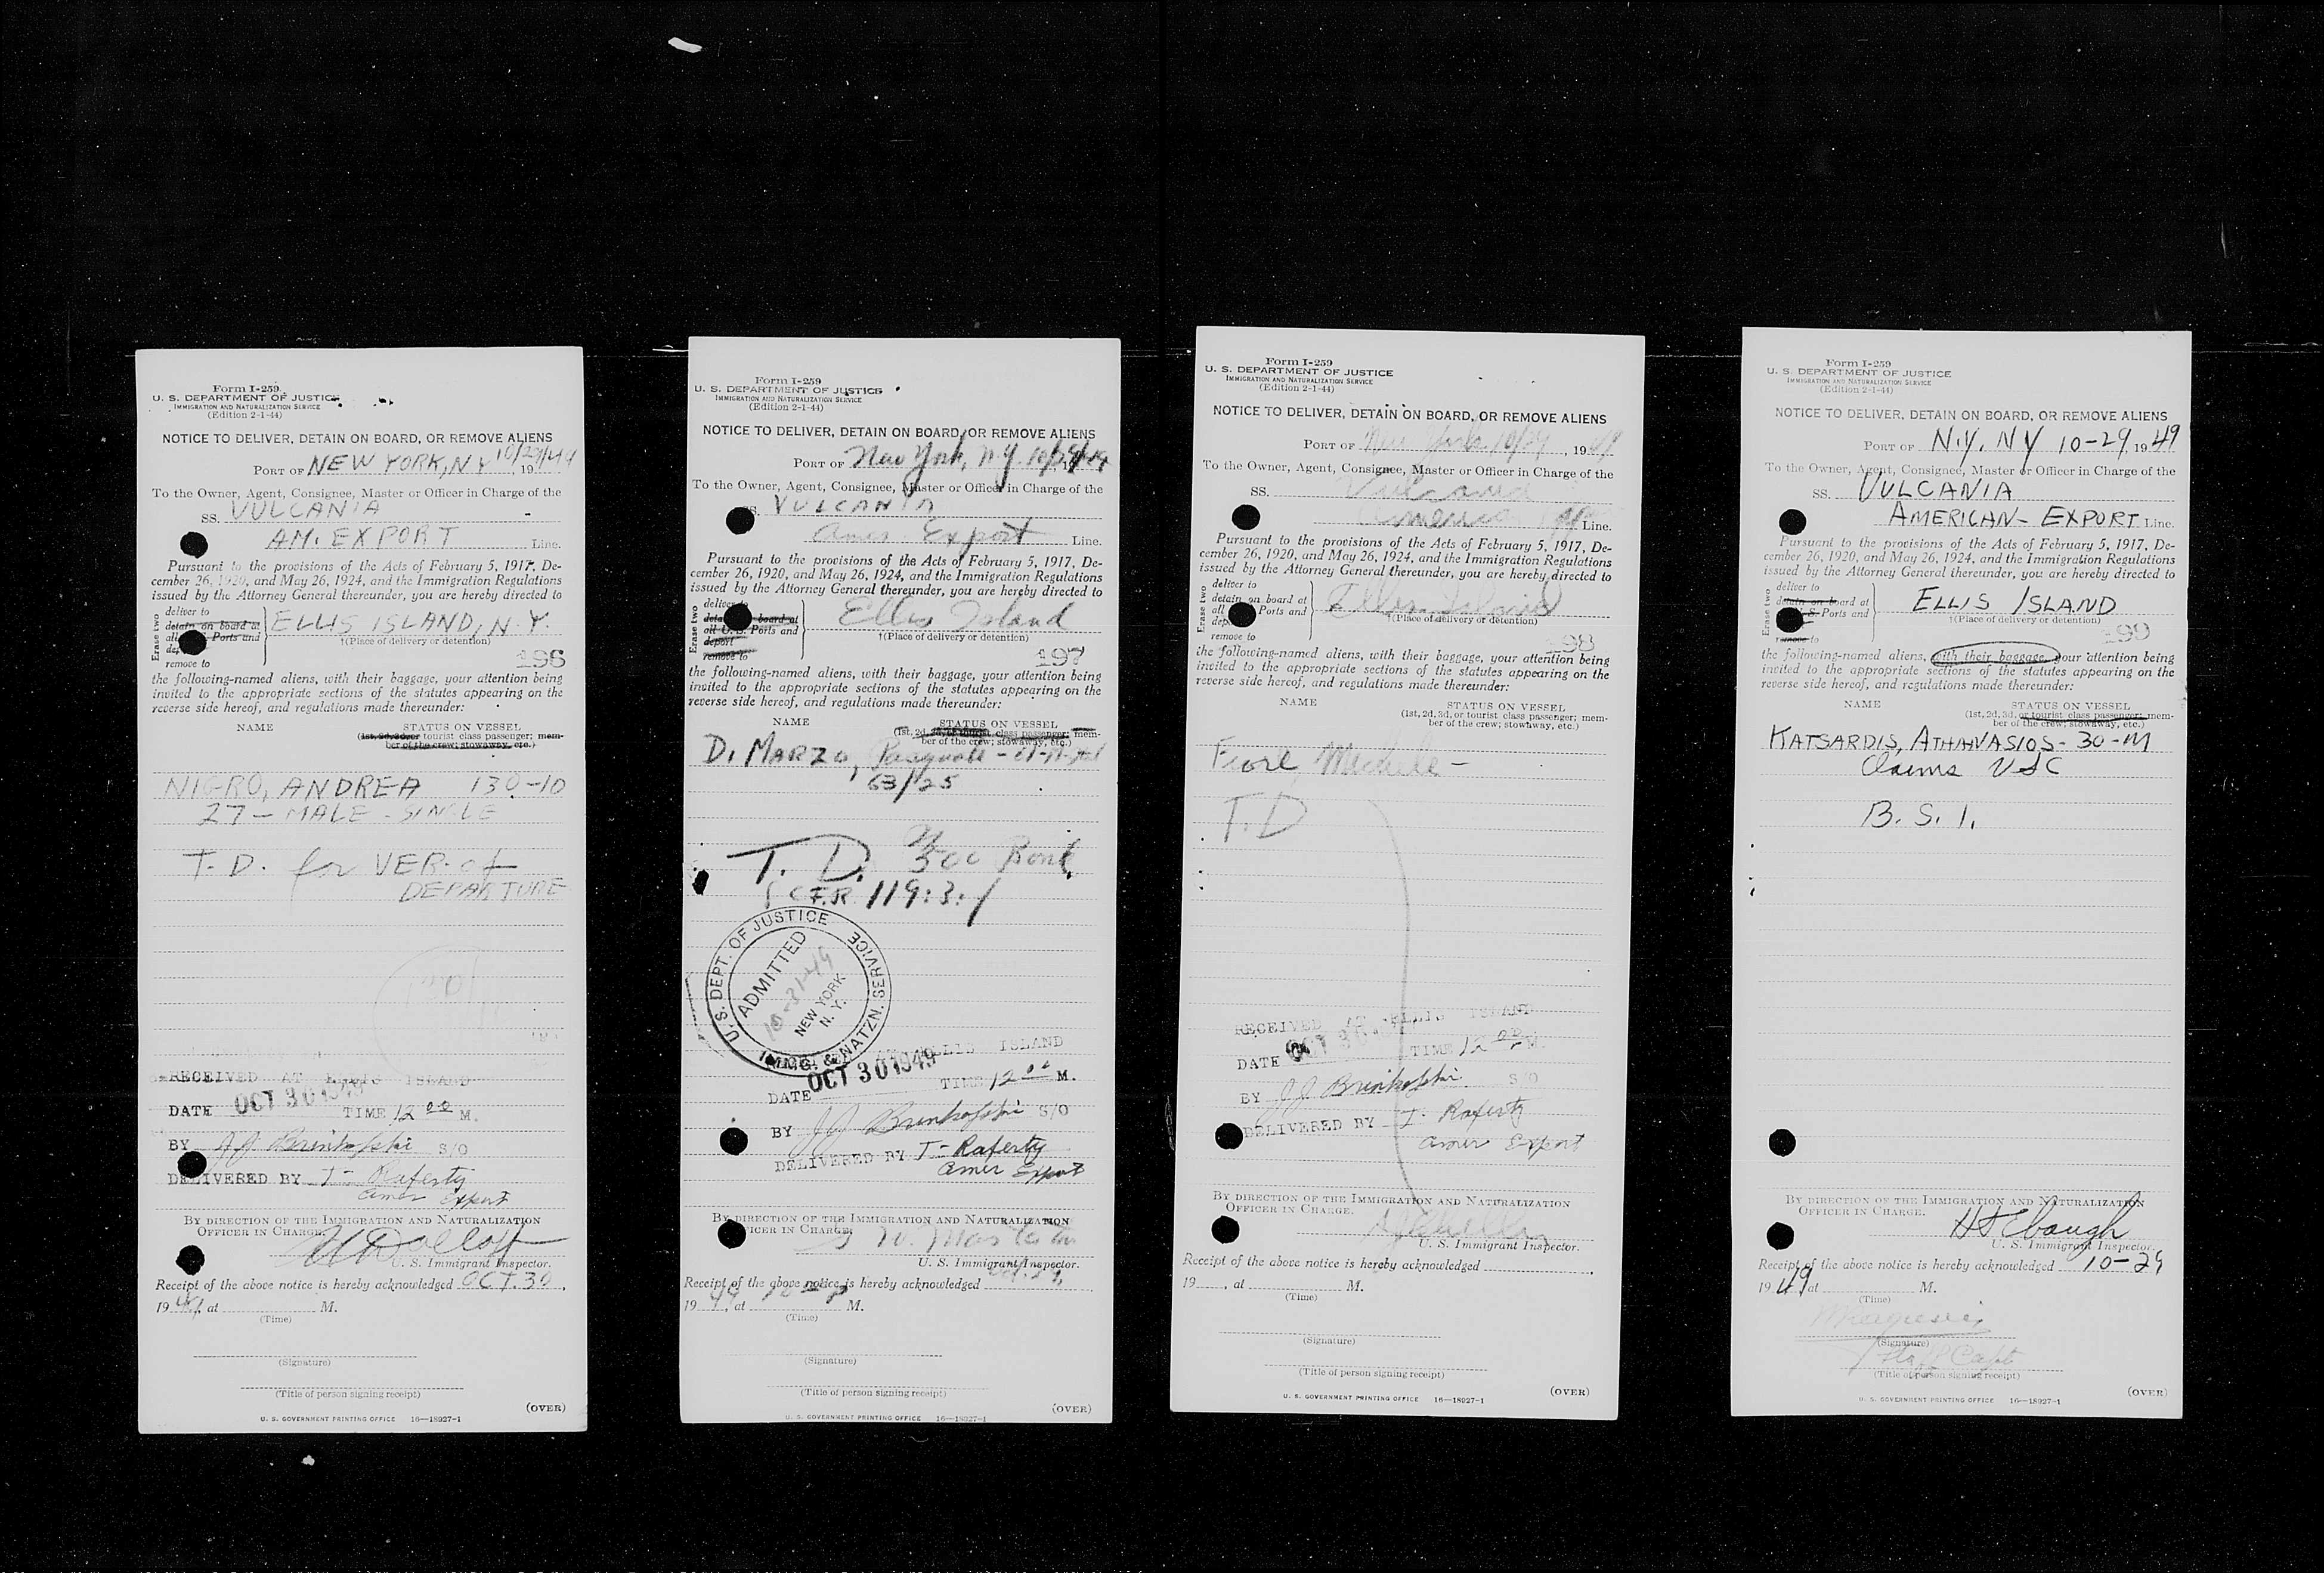 Form I-259
U. S. DEPARTMENT OF JUSTICE
IMMIGRATION AND NATURALIZATION SERVICE
(Edition 2-1-44)
NOTICE TO DELIVER, DETAIN ON BOARD, OR REMOVE ALIENS
PORT OF NEW YORK, NY 10/29/49, 19
To the Owner, Agent, Consignee, Master or Officer in Charge of the
SS. VULCANIA
AM. EXPORT Line.
Pursuant to the provisions of the Acts of February 5, 1917, De-
cember 26, 1920, and May 26, 1924, and the Immigration Regulations
issued by the Attorney General thereunder, you are hereby directed to
Erase two
deliver to
detain on board at
all Ports and
remove to
ELLIS ISLAND, N.Y.
†(Place of delivery or detention)
196
the following-named aliens, with their baggage, your attention being
invited to the appropriate sections of the statutes appearing on the
reverse side hereof, and regulations made thereunder:
NAME STATUS ON VESSEL
(1st, 2d, 3d, or tourist class passenger; mem-
ber of the crew; stowaway, etc.)
NIGRO, ANDREA 130-10
27 - MALE - SINGLE
T. D. for VER. of
DEPARTURE
RECEIVED AT ELLIS ISLAND
DATE OCT 30 1949 TIME 12 00 M.
BY JJ Brinkofski S/O
DELIVERED BY T- Raferty
amer Export
BY DIRECTION OF THE IMMIGRATION AND NATURALIZATION
OFFICER IN CHARGE.
U. S. Immigrant Inspector.
Receipt of the above notice is hereby acknowledged OCT. 30,
1949, at M.
(Time)
(Signature)
(Title of person signing receipt)
(OVER)
U. S. GOVERNMENT PRINTING OFFICE 16—18927-1
Form I-259
U. S. DEPARTMENT OF JUSTICE
IMMIGRATION AND NATURALIZATION SERVICE
(Edition 2-1-44)
NOTICE TO DELIVER, DETAIN ON BOARD, OR REMOVE ALIENS
PORT OF New York, N.Y. 10/29/49
To the Owner, Agent, Consignee, Master or Officer in Charge of the
SS. VULCANIA
Amer. Export Line.
Pursuant to the provisions of the Acts of February 5, 1917, De-
cember 26, 1920, and May 26, 1924, and the Immigration Regulations
issued by the Attorney General thereunder, you are hereby directed to
Erase two
deliver to
detain on board at
all U. S. Ports and
deport
remove to
Ellis Island
†(Place of delivery or detention)
197
the following-named aliens, with their baggage, your attention being
invited to the appropriate sections of the statutes appearing on the
reverse side hereof, and regulations made thereunder:
NAME STATUS ON VESSEL
(1st, 2d, 3d, or tourist class passenger; mem-
ber of the crew; stowaway, etc.)
Di MARZO, Pasquale
63/25
T. D. 500 Bond
8 C.F.R. 119:3:1
U. S. DEPT. OF JUSTICE
ADMITTED
10-31-49
NEW YORK
N. Y.
IMMIG. & NATZN. SERVICE
ELLIS ISLAND
DATE OCT 30 1949 TIME 12 00 M.
BY JJ Brinkofski S/O
DELIVERED BY T- Raferty
amer Export
BY DIRECTION OF THE IMMIGRATION AND NATURALIZATION
OFFICER IN CHARGE.
U. S. Immigrant Inspector.
Receipt of the above notice is hereby acknowledged
1949, at M.
(Time)
(Signature)
(Title of person signing receipt)
(OVER)
U. S. GOVERNMENT PRINTING OFFICE 16—18927-1
Form I-259
U. S. DEPARTMENT OF JUSTICE
IMMIGRATION AND NATURALIZATION SERVICE
(Edition 2-1-44)
NOTICE TO DELIVER, DETAIN ON BOARD, OR REMOVE ALIENS
PORT OF New York 10/29, 1949
To the Owner, Agent, Consignee, Master or Officer in Charge of the
SS. Vulcania
Line.
Pursuant to the provisions of the Acts of February 5, 1917, De-
cember 26, 1920, and May 26, 1924, and the Immigration Regulations
issued by the Attorney General thereunder, you are hereby directed to
Erase two
deliver to
detain on board at
all Ports and
remove to
Ellis Island
†(Place of delivery or detention)
198
the following-named aliens, with their baggage, your attention being
invited to the appropriate sections of the statutes appearing on the
reverse side hereof, and regulations made thereunder:
NAME STATUS ON VESSEL
(1st, 2d, 3d, or tourist class passenger; mem-
ber of the crew; stowaway, etc.)
Fiore Michele -
T. D
RECEIVED AT ELLIS ISLAND
DATE OCT 30 TIME 12 00 M.
BY JJ Brinkofski S/O
DELIVERED BY T. Raferty
amer Export
BY DIRECTION OF THE IMMIGRATION AND NATURALIZATION
OFFICER IN CHARGE.
U. S. Immigrant Inspector.
Receipt of the above notice is hereby acknowledged
19 , at M.
(Time)
(Signature)
(Title of person signing receipt)
(OVER)
U. S. GOVERNMENT PRINTING OFFICE 16—18927-1
Form I-259
U. S. DEPARTMENT OF JUSTICE
IMMIGRATION AND NATURALIZATION SERVICE
(Edition 2-1-44)
NOTICE TO DELIVER, DETAIN ON BOARD, OR REMOVE ALIENS
PORT OF N.Y. NY 10-29, 1949
To the Owner, Agent, Consignee, Master or Officer in Charge of the
SS. VULCANIA
AMERICAN - EXPORT Line.
Pursuant to the provisions of the Acts of February 5, 1917, De-
cember 26, 1920, and May 26, 1924, and the Immigration Regulations
issued by the Attorney General thereunder, you are hereby directed to
Erase two
deliver to
detain on board at
S. Ports and
remove to
ELLIS ISLAND
†(Place of delivery or detention)
199
the following-named aliens, with their baggage, your attention being
invited to the appropriate sections of the statutes appearing on the
reverse side hereof, and regulations made thereunder:
NAME STATUS ON VESSEL
(1st, 2d, 3d, or tourist class passenger; mem-
ber of the crew; stowaway, etc.)
KATSARDIS, ATHANASIOS - 30 - M
Claims USC
B. S. I.
BY DIRECTION OF THE IMMIGRATION AND NATURALIZATION
OFFICER IN CHARGE.
HS Ebaugh
U. S. Immigrant Inspector.
Receipt of the above notice is hereby acknowledged 10-29
1949 at M.
(Time)
(Signature)
Staff Capt
(Title of person signing receipt)
(OVER)
U. S. GOVERNMENT PRINTING OFFICE 16—18927-1